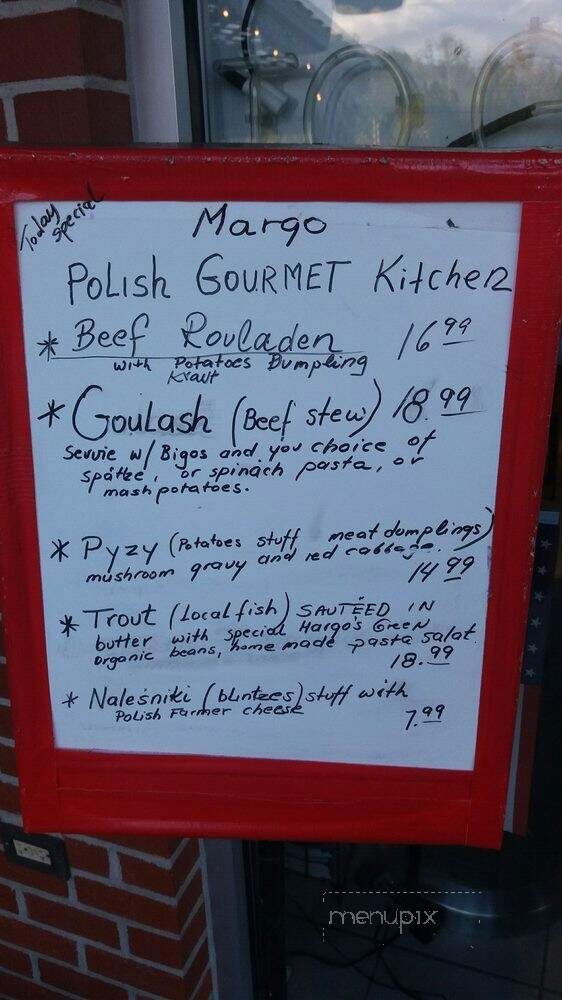 Today
special
Margo
POLISH GOURMET Kitchen
* Beef Rouladen 16 99
with Potatoes Dumpling
Kraut
* Goulash (Beef stew) 18.99
servie w/ Bigos and you choice of
spätze, or spinach pasta, or
mash potatoes.
* Pyzy (Potatoes stuff meat dumplings)
mushroom gravy and red cabbage.
14 99
* Trout (Local fish) SAUTÉED IN
butter with special Margo's Green
organic beans, home made pasta salat.
18.99
* Naleśniki (blintzes) stuff with
Polish Farmer cheese
7.99
menupix